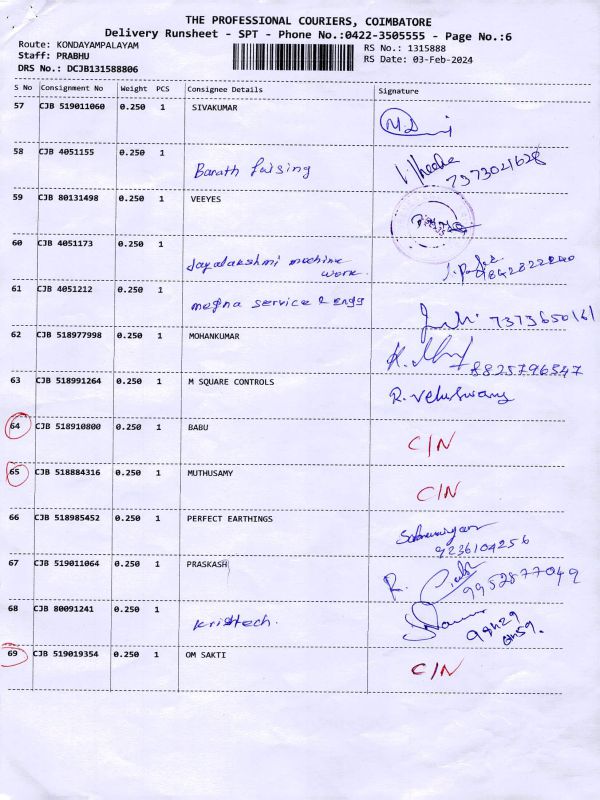 THE PROFESSIONAL COURIERS, COIMBATORE
Delivery Runsheet - SPT - Phone No.:0422-3505555 - Page No.:6
Route: KONDAYAMPALAYAM RS No.: 1315888
Staff: PRABHU RS Date: 03-Feb-2024
DRS No.: DCJB131588806
S No Consignment No Weight PCS Consignee Details Signature
57 CJB 519011060 0.250 1 SIVAKUMAR
58 CJB 4051155 0.250 1 Barath
7373021628
59 CJB 80131498 0.250 1 VEEYES
60 CJB 4051173 0.250 1 Jayalakshmi machine
work.
61 CJB 4051212 0.250 1 megna service & engg
7373650161
62 CJB 518977998 0.250 1 MOHANKUMAR
8825796547
63 CJB 518991264 0.250 1 M SQUARE CONTROLS R. Veluswamy
64 CJB 518910800 0.250 1 BABU C/N
65 CJB 518884316 0.250 1 MUTHUSAMY C/N
66 CJB 518985452 0.250 1 PERFECT EARTHINGS
9236104256
67 CJB 519011064 0.250 1 PRASKASH R.
9952877049
68 CJB 80091241 0.250 1 Kristech.
69 CJB 519019354 0.250 1 OM SAKTI C/N